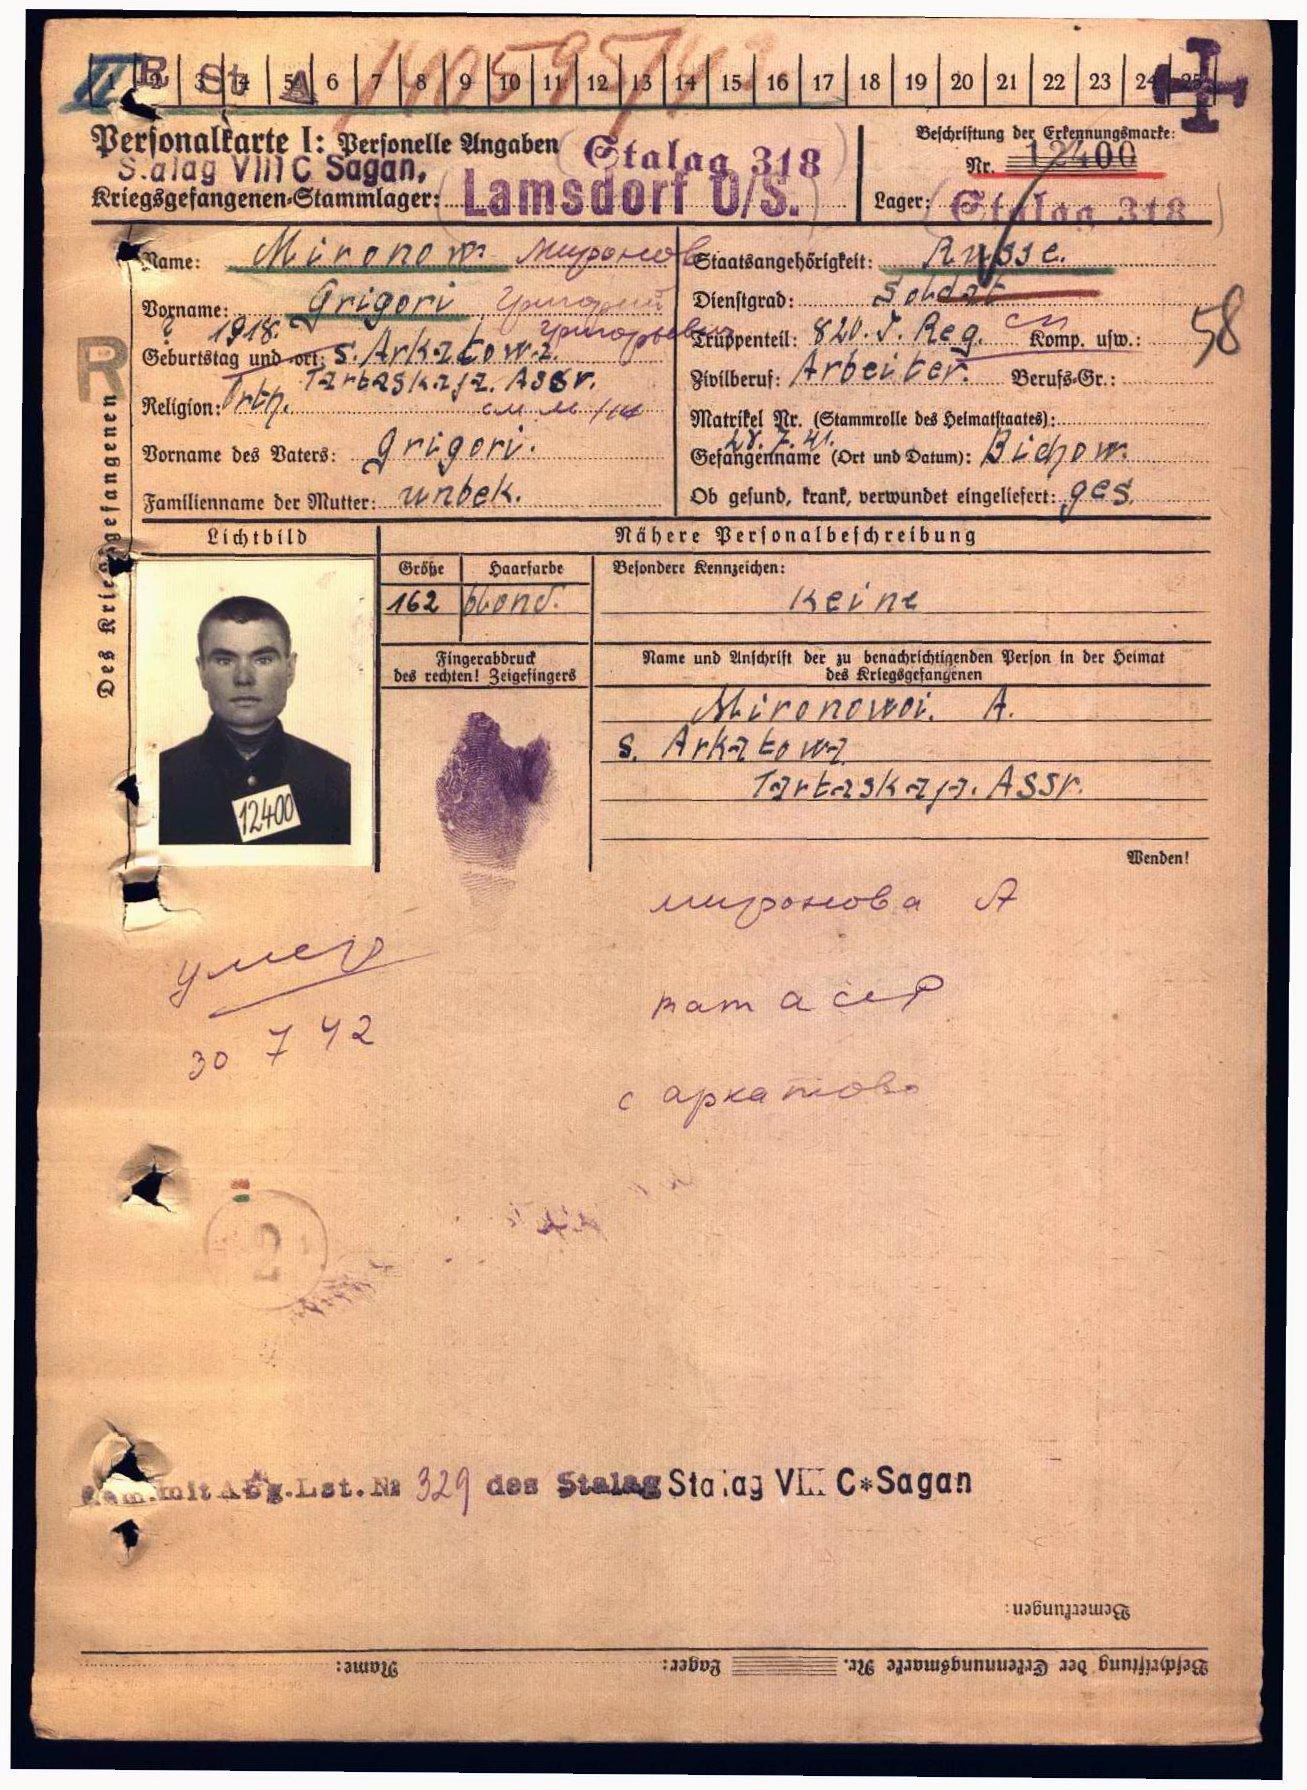 R St A 3 4 5 6 7 8 9 10 11 12 13 14 15 16 17 18 19 20 21 22 23 24 25
Personalkarte I: Personelle Angaben
Stalag 318
Stalag VIII C Sagan,
Kriegsgefangenen-Stammlager: Lamsdorf O/S.
Beschriftung der Erkennungsmarke:
Nr. 12400
Lager: Stalag 318
Name: Mironow. Миронов
Vorname: Grigori Григорий
Григорьевич
? 1918.
Geburtstag und -ort: s. Arkatowa.
Tartaskaja. Assr.
Religion: Orth.
Vorname des Vaters: Grigori.
Familienname der Mutter: unbek.
Staatsangehörigkeit: Russe.
Dienstgrad: Soldat
Truppenteil: 820. I. Reg. Komp. usw.:
58
Zivilberuf: Arbeiter. Berufs-Gr.:
Matrikel Nr. (Stammrolle des Heimatstaates):
28.7.41.
Gefangenname (Ort und Datum): Bichow.
Ob gesund, krank, verwundet eingeliefert: ges.
R
Des Kriegsgefangenen
Lichtbild
Nähere Personalbeschreibung
Größe Haarfarbe
162 blond.
Besondere Kennzeichen:
Keine
Fingerabdruck
des rechten! Zeigefingers
Name und Anschrift der zu benachrichtigenden Person in der Heimat
des Kriegsgefangenen
Mironowoi. A.
s. Arkatowa
Tartaskaja. Assr.
12400
Wenden!
миронова А
умер
30 7 42
тат а сср
с аркатово
2
mit Abg.Lst.№ 329 des Stalag Stalag VIII C*Sagan
Bemerkungen:
Beschriftung der Erkennungsmarke Nr. Lager: Name: